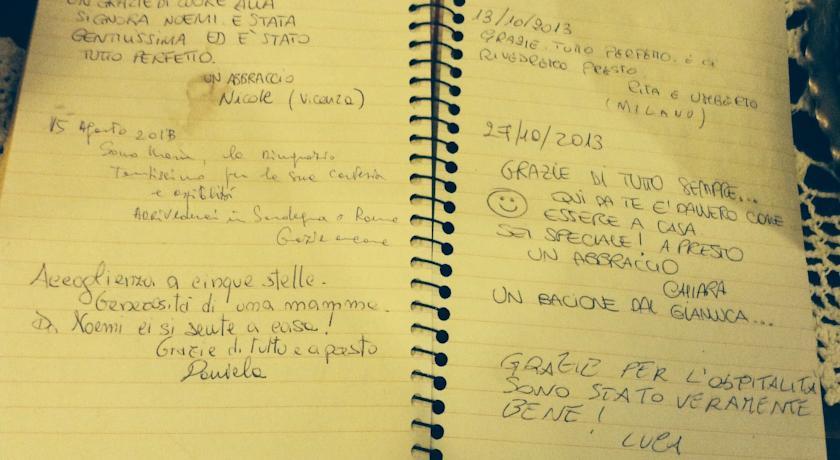 UN GRAZIE DI CUORE ALLA
SIGNORA NOEMI. E STATA
GENTILISSIMA ED E' STATO
TUTTO PERFETTO.
UN ABBRACCIO
Nicole (Vicenza)
15 Agosto 2013
Sono Maria, la Ringrazio
Tantissimo per la sua cortesia
e
Arrivederci in Sardegna o Roma
Grazie ancora
Accoglienza a cinque stelle.
Generosità di una mamma.
Da Noemi ci si sente a casa!
Grazie di tutto e a presto
Daniela
13/10/2013
GRAZIE. TUTTO PERFETTO. E CI
RIVEDREMO PRESTO
RITA E UMBERTO
(MILANO)
27/10/2013
GRAZIE DI TUTTO SEMPRE...
QUI DA TE E' DAVVERO COME
ESSERE A CASA
SEI SPECIALE! A PRESTO
UN ABBRACCIO
CHIARA
UN BACIONE DAL GIANLUCA...
GRAZIE PER L'OSPITALITÀ
SONO STATO VERAMENTE
BENE!
LUCA